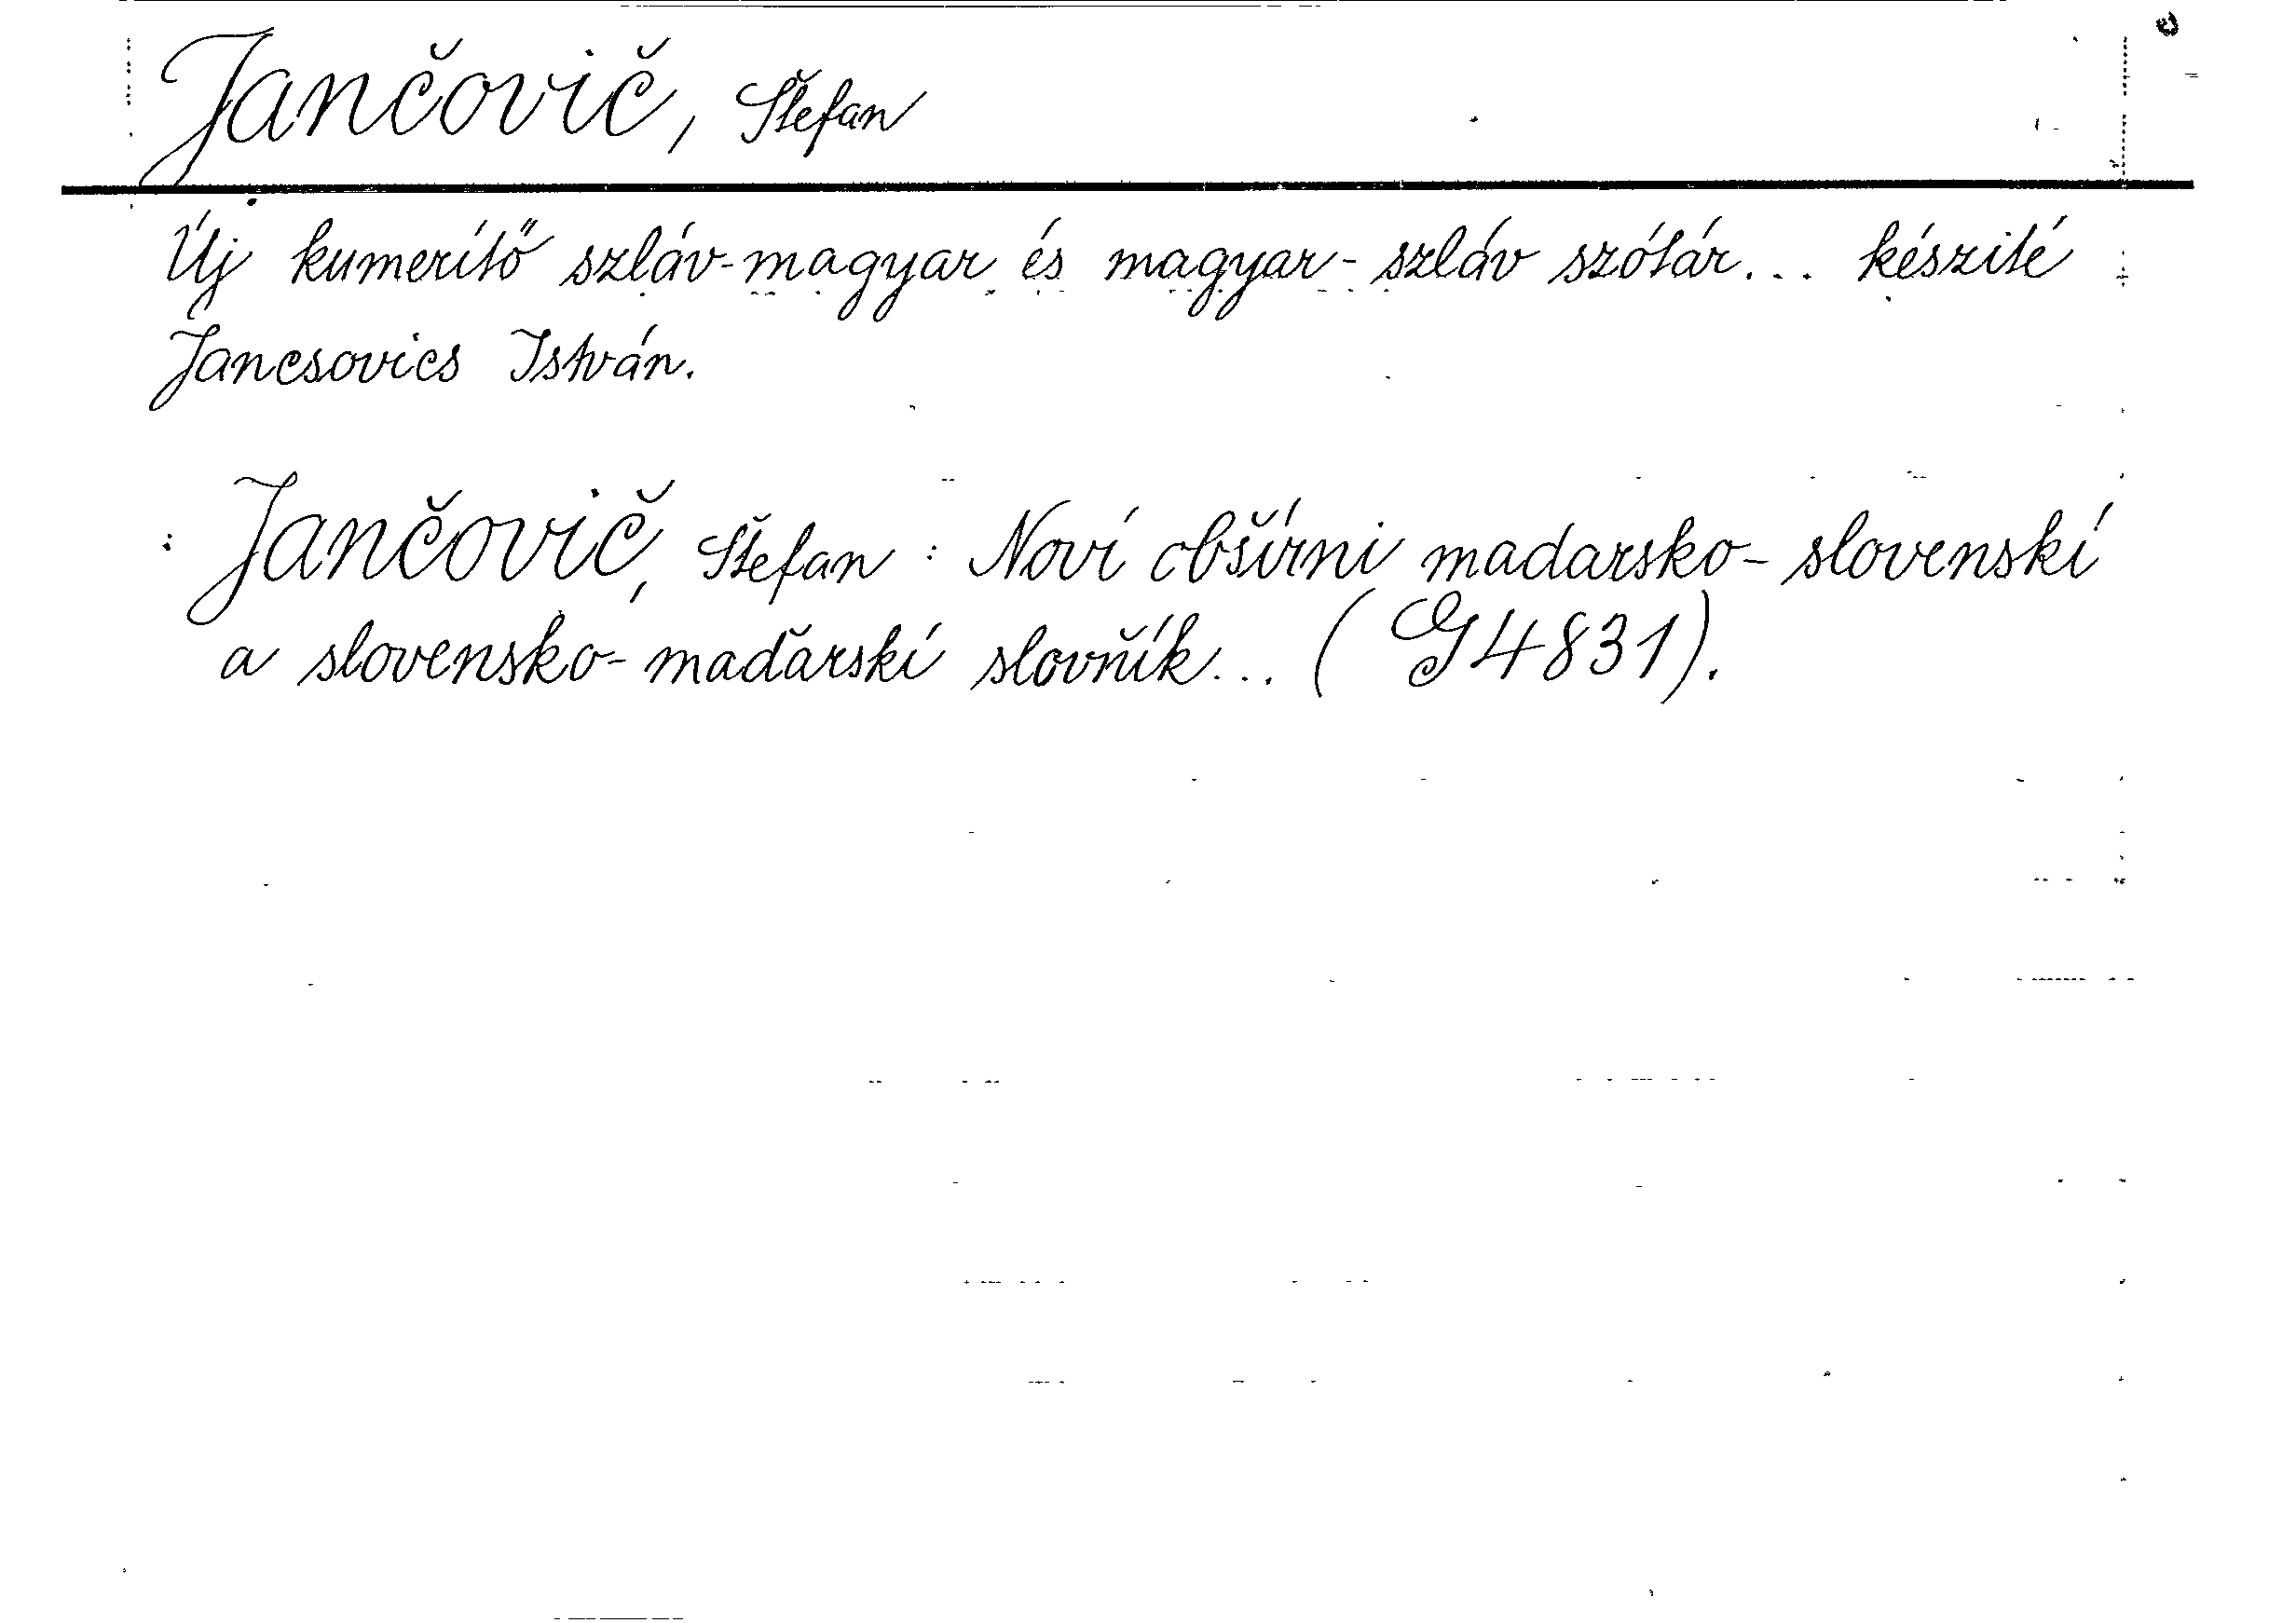 Jančovič, Štefan
Új kumerítő szláv-magyar és magyar-szláv szótár... készité
Jancsovics István.
Jančovič, Štefan : Noví obšírni madarsko-slovenskí
a slovensko-maďarskí slovňík... (G4831).